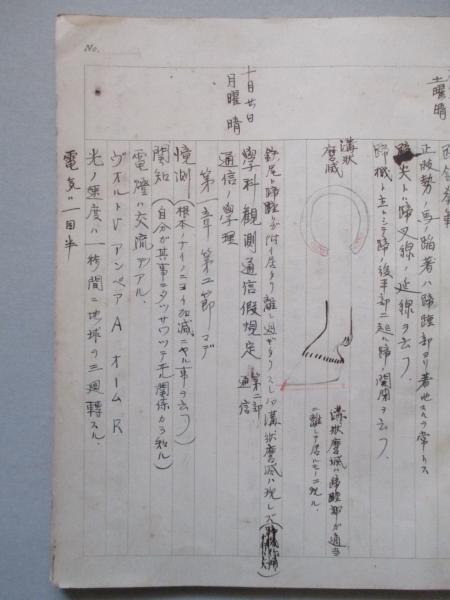 No.
土曜 晴
正肢勢ノ馬ノ蹈著ハ蹄踵部ヨリ著地スルヲ常トス
蹄尖トハ蹄叉線ノ止線ヲ云フ
蹄機ト主トシテ蹄ノ後半部ニ起ル蹄ノ開閉ヲ云フ.
溝状磨滅
溝状磨滅ハ蹄踵部ガ適当
ニ離レテ居ルモーニ現ル.
鉄尾ト蹄踵ガ附イ居タリ離レ過ギタリスレバ溝状磨滅ハ現レズ
十月廿日
月曜 晴
學科 觀測通信假規定 第二部 通信
通信ノ學理
第一章ノ第二節マデ
憶測(根本ノナイノニヨイ加減ニヤル事ヲ云フ)
関知(自分が其事ニタヅサワツテ千ル関係カラ知ル)
電燈ハ交流デアル.
ヴオルトV アンペア A オーム R
光ノ速度ハ一秒間ニ地球ヲ三週轉スル.
電気ハ一回半